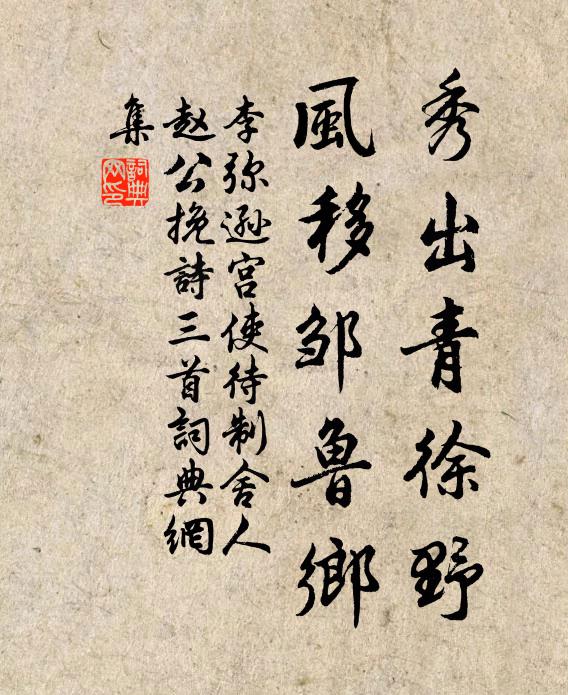 秀出青徐野
風移邹魯鄉
李弥遜宫使待制舍人
赵公挽詩三首詞典網
集
詞典网印